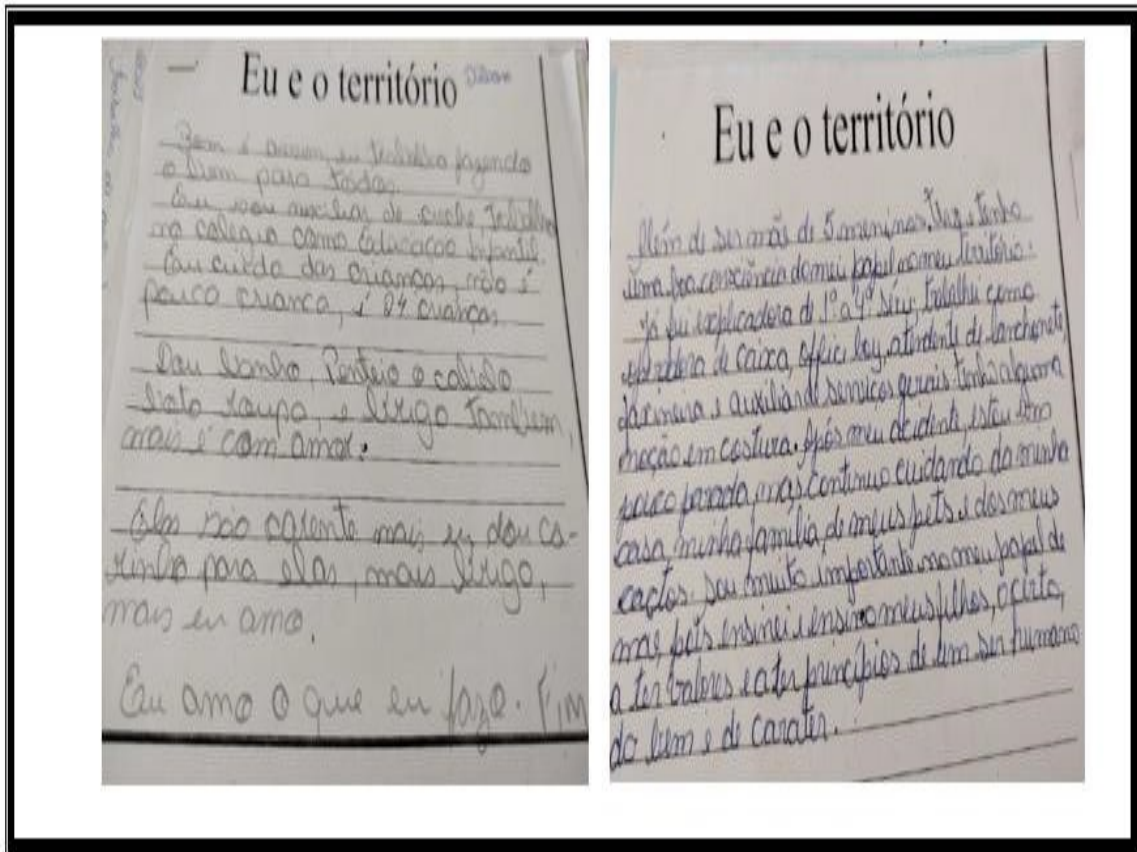 Eu e o território
Bem é assim eu trabalho fazendo
o bem para todos.
Eu sou auxiliar de creche trabalho
no colegio como Educação Infantil.
Eu cuido das crianças, não é
pouco criança, é 24 crianças
Dou banho, Penteio o cabelo
boto roupa, e brigo também,
mais é com amor.
Elas são carente mais eu dou ca-
rinho para elas, mais brigo,
mais eu amo.
Eu amo o que eu faço. Fim
Eu e o território
Além de ser mãe de 5 meninas, tenho
uma boa consciência do meu papel no meu território.
Já fui explicadora de 1ª a 4ª série, trabalhei como
operadora de caixa, office boy, atendente de lanchonete,
faxineira e auxiliar de serviços gerais tenho alguma
noção em costura. Após meu acidente, estou um
pouco parada, mas continuo cuidando da minha
casa, minha família, de meus pets e dos meus
cactos. Sou muito importante no meu papel de
mãe, pois ensinei e ensino meus filhos, o certo,
a ter valores e a ter princípios de um ser humano
do bem e de carater.